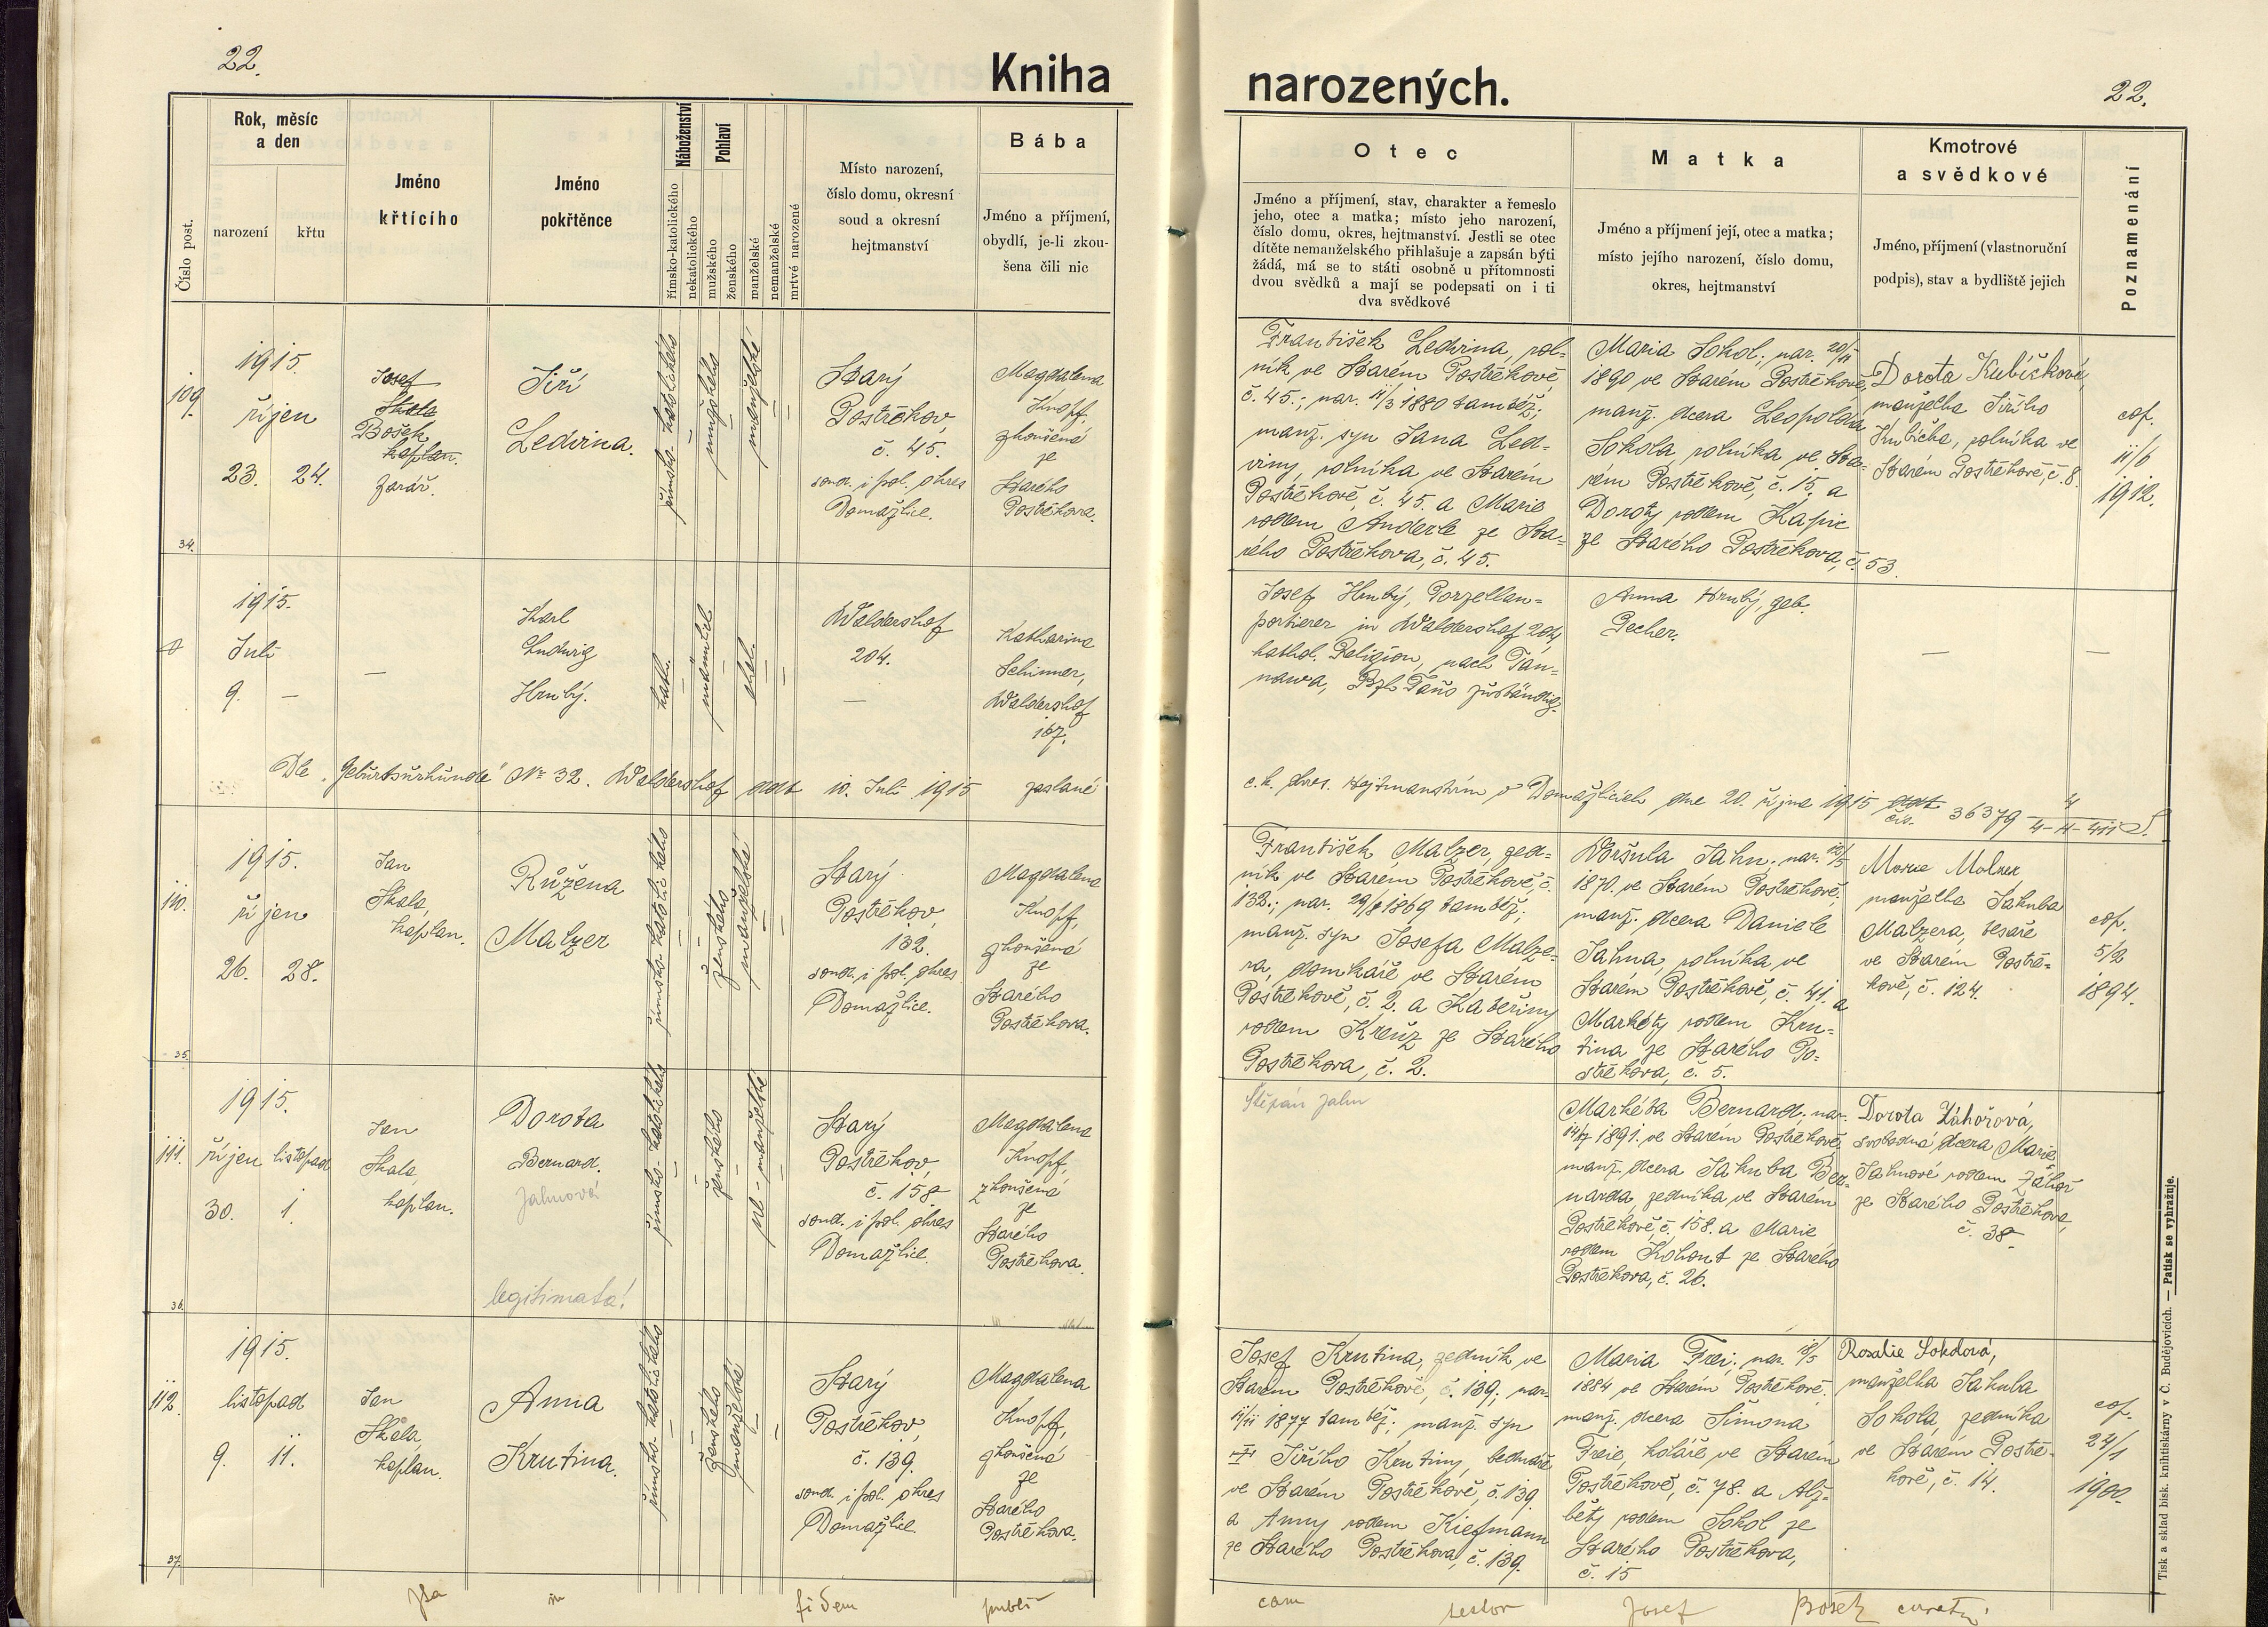 22.
Kniha
Rok, měsíc
a den
narození
křtu
Číslo post.
Jméno
křtícího
Jméno
pokřtěnce
Náboženství
římsko-katolického
nekatolického
Pohlaví
mužského
ženského
manželské
nemanželské
mrtvě narozené
Místo narození,
číslo domu, okresní
soud a okresní
hejtmanství
Bába
Jméno a příjmení,
obydlí, je-li zkou-
šena čili nic
109.
1915.
říjen
23. 24.
34.
Josef
Skala
Bošek
kaplan.
farář.
Jiří
Ledvina.
římsko-katolického
mužského
manželské
Starý
Postřekov,
č. 45.
soud. i pol. okres
Domažlice.
Magdalena
Knopf,
zkoušená
ze
Starého
Postřekova.
1915.
Juli
9. —
—
Karl
Ludwig
Hrubý.
kath.
männlich
ehel.
Waldershof
204.
—
Katharina
Schinner,
Waldershof
167.
Dle „Geburtsurkunde" No 32. Waldershof ddt 10. Juli 1915 zaslané
110.
1915.
říjen
26. 28.
35.
Jan
Skala,
kaplan.
Růžena
Malzer
římsko-katolického
ženského
manželské
Starý
Postřekov,
132.
soud. i pol. okres
Domažlice.
Magdalena
Knopf,
zkoušená
ze
Starého
Postřekova.
111.
1915.
říjen listopad
30. 1.
36.
Jan
Skala,
kaplan.
Dorota
Bernard.
Jahnová
legitimata!
římsko-katolického
ženského
ne-manželské
Starý
Postřekov,
č. 158
soud. i pol. okres
Domažlice.
Magdalena
Knopf,
zkoušená
ze
Starého
Postřekova.
112.
1915.
listopad
9. 11.
37.
Jan
Skala,
kaplan.
Anna
Krutina.
římsko-katolického
ženského
manželské
Starý
Postřekov,
č. 139.
soud. i pol. okres
Domažlice.
Magdalena
Knopf,
zkoušená
ze
Starého
Postřekova.
in fidem publi
narozených.
22.
Otec
Jméno a příjmení, stav, charakter a řemeslo
jeho, otec a matka; místo jeho narození,
číslo domu, okres, hejtmanství. Jestli se otec
dítěte nemanželského přihlašuje a zapsán býti
žádá, má se to státi osobně u přítomnosti
dvou svědků a mají se podepsati on i ti
dva svědkové
Matka
Jméno a příjmení její, otec a matka;
místo jejího narození, číslo domu,
okres, hejtmanství
Kmotrové
a svědkové
Jméno, příjmení (vlastnoruční
podpis), stav a bydliště jejich
Poznamenání
František Ledvina, rol-
ník ve Starém Postřekově
č. 45.; nar. 11/3 1880 tamtéž;
manž. syn Jana Led-
viny, rolníka ve Starém
Postřekově, č. 45. a Marie
rodem Anderle ze Sta-
rého Postřekova, č. 45.
Maria Sokol; nar. 20/11
1890 ve Starém Postřekově,
manž. dcera Leopolda
Sokola, rolníka ve Sta-
rém Postřekově, č. 15. a
Doroty rodem Kapic
ze Starého Postřekova, č. 53.
Dorota Kubíčková,
manželka Jiřího
Kubíčka, rolníka ve
Starém Postřekově, č. 8.
cop.
11/6
1912.
Josef Hrubý, Porzellan-
portierer in Waldershof 204
kathol. Religion, nach Tan-
nawa, Bzh Taus zuständig.
Anna Hrubý, geb.
Pecher.
—
—
c. k. okres. hejtmanstvím v Domažlicích dne 20. října 1915 čís. 36379
František Malzer, zed-
ník ve Starém Postřekově, č.
132.; nar. 29/8 1869 tamtéž;
manž. syn Josefa Malze-
ra, domkáře ve Starém
Postřekově, č. 2. a Kateřiny
rodem Kreuz ze Starého
Postřekova, č. 2.
Voršula Jahn; nar.
1870. ve Starém Postřekově,
manž. dcera Daniele
Jahna, rolníka ve
Starém Postřekově, č. 41. a
Markéty rodem Kru-
tina ze Starého Po-
střekova, č. 5.
Marie Malzer
manželka Jakuba
Malzera, tesaře
ve Starém Postře-
kově, č. 124.
cop.
5/2
1894.
Štěpán Jahn
Markéta Bernard; nar.
14/7 1891. ve Starém Postřekově
manž. dcera Jakuba Ber-
narda, zedníka ve Starém
Postřekově, č. 158. a Marie
rodem Kohout ze Starého
Postřekova, č. 26.
Dorota Záhořová,
svobodná dcera Marie
Jahnové rodem Záhoř
ze Starého Postřekova,
č. 38
Josef Krutina, zedník ve
Starém Postřekově, č. 139; nar.
11/11 1877 tamtéž; manž. syn
Jiřího Krutiny, bednáře
ve Starém Postřekově, č. 139.
a Anny rodem Kiefmann
ze Starého Postřekova, č. 139.
Maria Frei; nar. 18/5
1884 ve Starém Postřekově.
manž. dcera Šimona
Freie, koláře, ve Starém
Postřekově, č. 78. a Alž-
běty rodem Sokol ze
Starého Postřekova,
č. 15
Rosalie Sokolová,
manželka Jakuba
Sokola, zedníka
ve Starém Postře-
kově, č. 14.
cop.
27/1
1900.
cam testor Josef Bošek
Tisk a sklad bisk. knihtiskárny v Č. Budějovicích. — Patisk se vyhražuje.